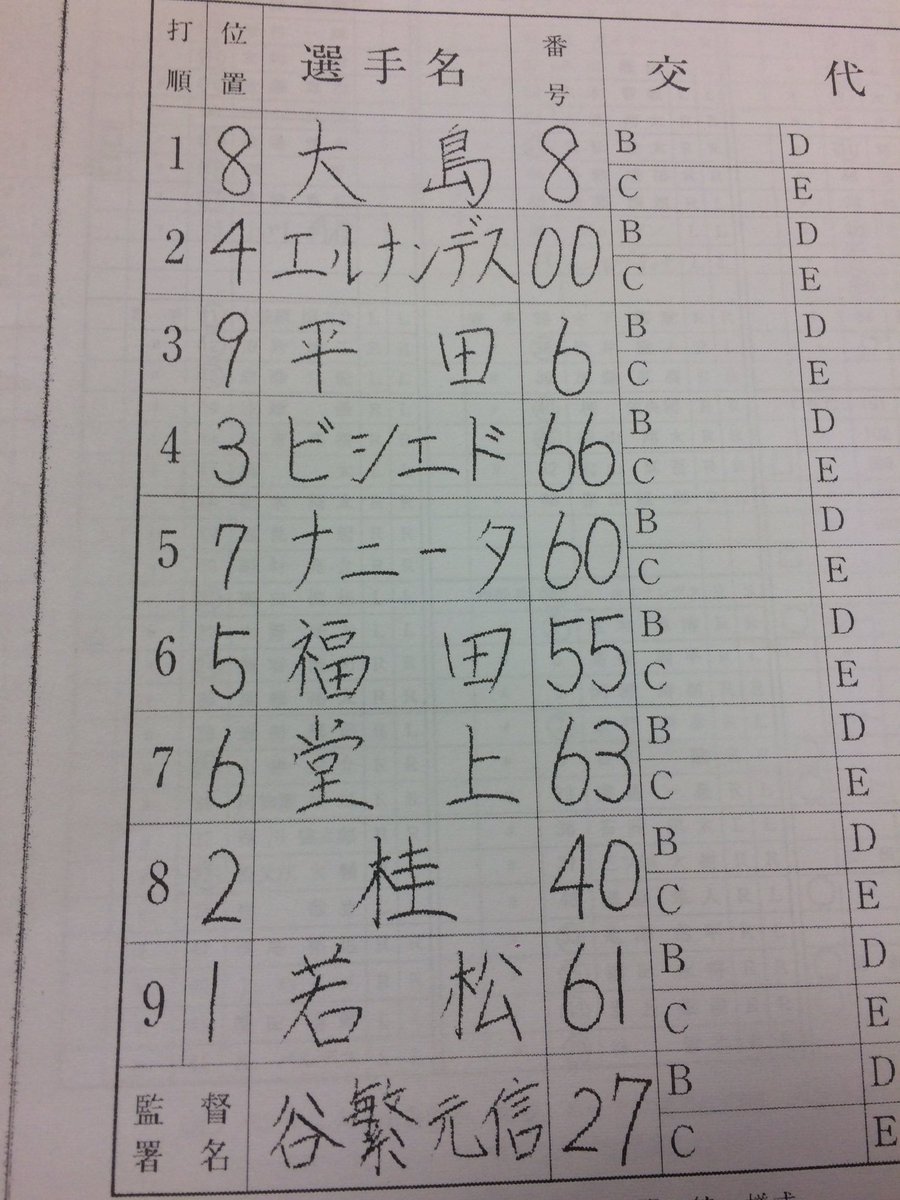 打順 位置 選手名 番号 交代
1 8 大島 8 B D
C E
2 4 エルナンデス 00 B D
C E
3 9 平田 6 B D
C E
4 3 ビシエド 66 B D
C E
5 7 ナニータ 60 B D
C E
6 5 福田 55 B D
C E
7 6 堂上 63 B D
C E
8 2 桂 40 B D
C E
9 1 若松 61 B D
C E
監督署名 谷繁元信 27 B D
C E